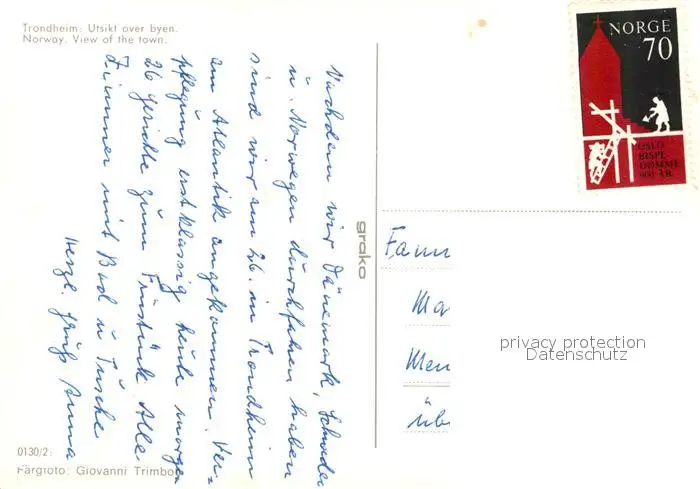 Trondheim: Utsikt over byen.
Norway. View of the town.
Nachdem wir Dänemark, Schweden
u. Norwegen durchfahren haben
sind wir am 26. in Trondheim
am Atlantik angekommen. Ver-
pflegung erstklassig heute morgen
26 gerichte zum Früstück Alle
Zimmer mit Bad u Dusche
Herzl. grüße Anna
grako
0130/2:
Färgfoto: Giovanni Trimboli
NORGE
70
OSLO
BISPE-
DØMME
900 ÅR
Fam
Ma
Men
üb
privacy protection
Datenschutz